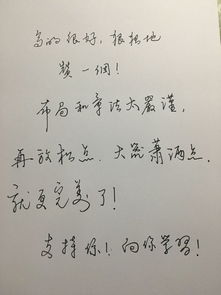 写的很好，狠狠地
赞一個！
布局和章法太嚴谨，
再放松点、大气萧洒点，
就更完美了！
支持你！向你学習！